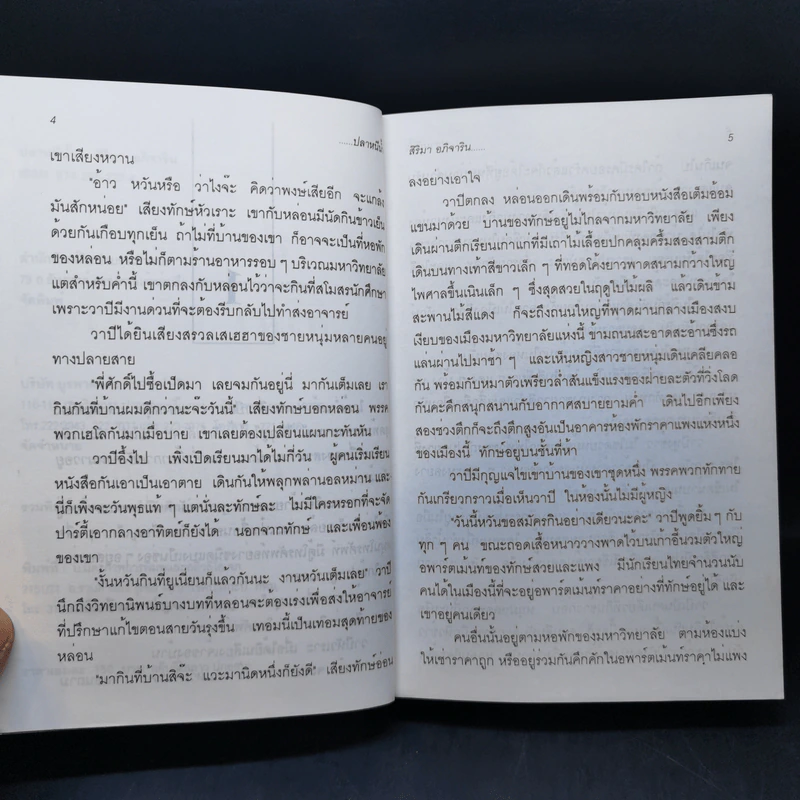 4
.....ปลาหนีน้ำ
เขาเสียงหวาน
"อ้าว หวันหรือ ว่าไงจ๊ะ คิดว่าพงษ์เสียอีก จะแกล้ง
มันสักหน่อย" เสียงทักษ์หัวเราะ เขากับหล่อนมีนัดกินข้าวเย็น
ด้วยกันเกือบทุกเย็น ถ้าไม่ที่บ้านของเขา ก็อาจจะเป็นที่หอพัก
ของหล่อน หรือไม่ก็ตามร้านอาหารรอบๆ บริเวณมหาวิทยาลัย
แต่สำหรับค่ำนี้ เขาตกลงกับหล่อนไว้ว่าจะกินที่สโมสรนักศึกษา
เพราะวาปีมีงานด่วนที่จะต้องรีบกลับไปทำส่งอาจารย์
วาปีได้ยินเสียงสรวลเสเฮฮาของชายหนุ่มหลายคนอยู่
ทางปลายสาย
"พี่ศักดิ์ไปซื้อเป็ดมา เลยจมกันอยู่นี่ มากันเต็มเลย เรา
กินกันที่บ้านผมดีกว่านะจ๊ะวันนี้" เสียงทักษ์บอกหล่อน พรรค
พวกเฮโลกันมาเมื่อบ่าย เขาเลยต้องเปลี่ยนแผนกะทันหัน
วาปีอึ้งไป เพิ่งเปิดเรียนมาได้ไม่กี่วัน ผู้คนเริ่มเรียน
หนังสือกันเอาเป็นเอาตาย เดินกันให้พลุกพล่านอลหม่าน และ
นี่ก็เพิ่งจะวันพุธแท้ๆ แต่นั่นละทักษ์ละ ไม่มีใครหรอกที่จะจัด
ปาร์ตี้เอากลางอาทิตย์ก็ยังได้ นอกจากทักษ์ และเพื่อนพ้อง
ของเขา
"งั้นหวันกินที่ยูเนี่ยนก็แล้วกันนะ งานหวันเต็มเลย" วาปี
นึกถึงวิทยานิพนธ์บางบทที่หล่อนจะต้องเร่งเพื่อส่งให้อาจารย์
ที่ปรึกษาแก้ไขตอนสายวันรุ่งขึ้น เทอมนี้เป็นเท่อมสุดท้ายของ
หล่อน
"มากินที่บ้านสิจ๊ะ แวะมานิดหนึ่งก็ยังดี" เสียงทักษ์อ่อน
สิริมา อภิจาริน.....
5
ลงอย่างเอาใจ
วาปีตกลง หล่อนออกเดินพร้อมกับหอบหนังสือเต็มอ้อม
แขนมาด้วย บ้านของทักษ์อยู่ไม่ไกลจากมหาวิทยาลัย เพียง
เดินผ่านตึกเรียนเก่าแก่ที่มีเถาไม้เลื้อยปกคลุมครึ้มสองสามตึก
เดินบนทางเท้าสีขาวเล็กๆ ที่ทอดโค้งยาวพาดสนามกว้างใหญ่
ไพศาลขึ้นเนินเล็กๆ ซึ่งสุดสวยในฤดูใบไม้ผลิ แล้วเดินข้าม
สะพานไม้สีแดง ก็จะถึงถนนใหญ่ที่พาดผ่านกลางเมืองสงบ
เงียบของเมืองมหาวิทยาลัยแห่งนี้ ข้ามถนนสะอาดสะอ้านซึ่งรถ
แล่นผ่านไปมาช้าๆ และเห็นหญิงสาวชายหนุ่มเดินเคลียคลอ
กัน พร้อมกับหมาตัวเพรียวล่ำสันแข็งแรงของฝ่ายละตัวที่วิ่งโลด
กันคะคึกสนุกสนานกับอากาศสบายยามค่ำ เดินไปอีกเพียง
สองช่วงตึกก็จะถึงตึกสูงอันเป็นอาคารห้องพักราคาแพงแห่งหนึ่ง
ของเมืองนี้ ทักษ์อยู่บนชั้นที่ห้า
วาปีมีกุญแจไขเข้าบ้านของเขาชุดหนึ่ง พรรคพวกทักทาย
กันเกรียวกราวเมื่อเห็นวาปี ในห้องนั้นไม่มีผู้หญิง
"วันนี้หวันขอสมัครกินอย่างเดียวนะคะ" วาปีพูดยิ้มๆ กับ
ทุกๆ คน ขณะถอดเสื้อหนาววางพาดไว้บนเก้าอี้นวมตัวใหญ่
อพาร์ตเมนท์ของทักษ์สวยและแพง มีนักเรียนไทยจำนวนนับ
คนได้ในเมืองนี้ที่จะอยู่อพาร์ตเม้นท์ราคาอย่างที่ทักษ์อยู่ได้ และ
เขาอยู่คนเดียว
คนอื่นนั้นอยู่ตามหอพักของมหาวิทยาลัย ตามห้องแบ่ง
ให้เช่าราคาถูก หรืออยู่ร่วมกันคึกคักในอพาร์ตเม้นท์ราคาไม่แพง